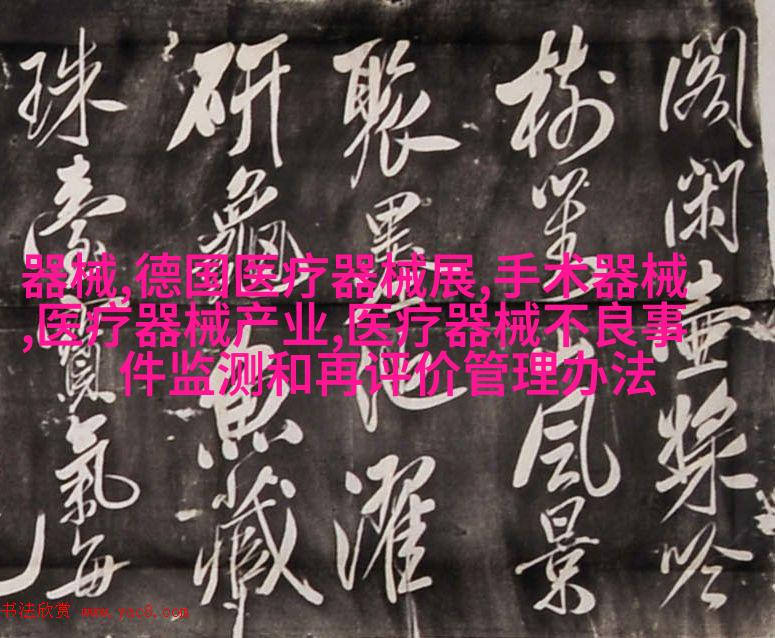 器械,德国医疗器械展,手术器械
,医疗器械产业,医疗器械不良事
件监测和再评价管理办法
阁闲壶吟
树风景
墨池濯
研龜魚藏
珠氣每
书法欣赏 www.yac8.com